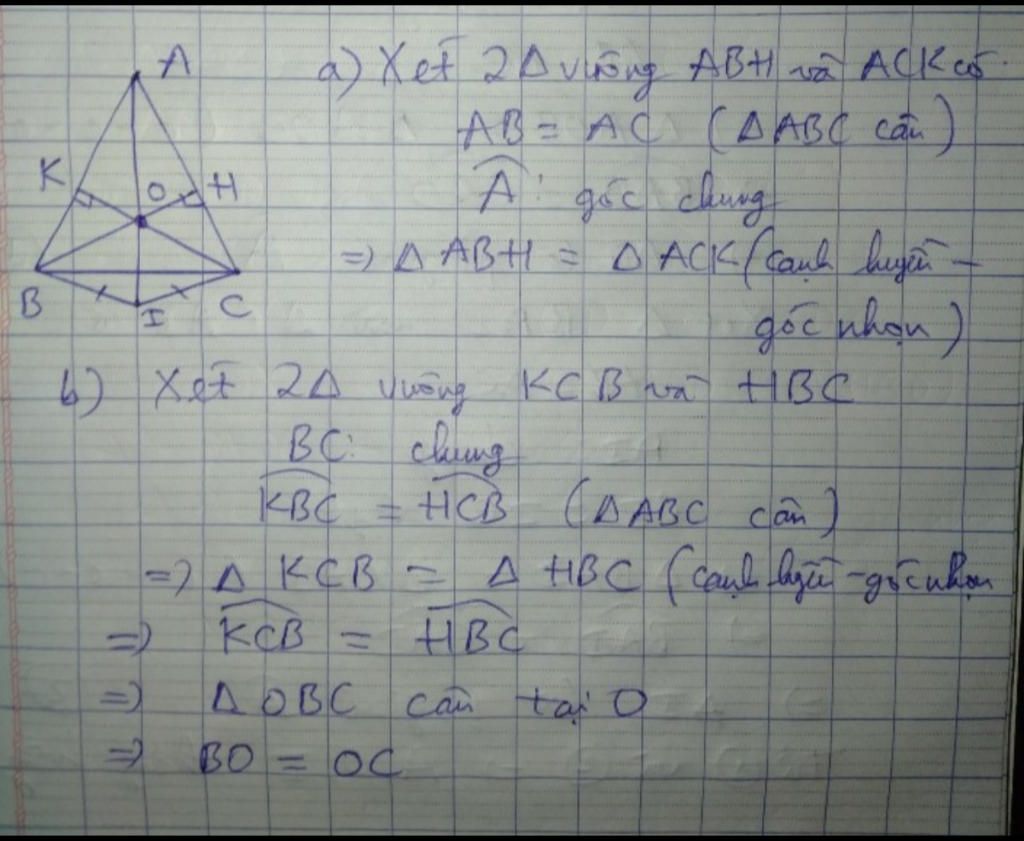 A
K
O
H
B
I
C
a) Xét 2Δ vuông ABH và ACK có
AB = AC (ΔABC cân)
Â: góc chung
=> Δ ABH = Δ ACK (cạnh huyền -
góc nhọn)
b) Xét 2Δ vuông KCB và HBC
BC: chung
\widehat{KBC} = \widehat{HCB} (ΔABC cân)
=> Δ KCB = Δ HBC (cạnh huyền - góc nhọn
=> \widehat{KCB} = \widehat{HBC}
=> Δ OBC cân tại O
=> BO = OC